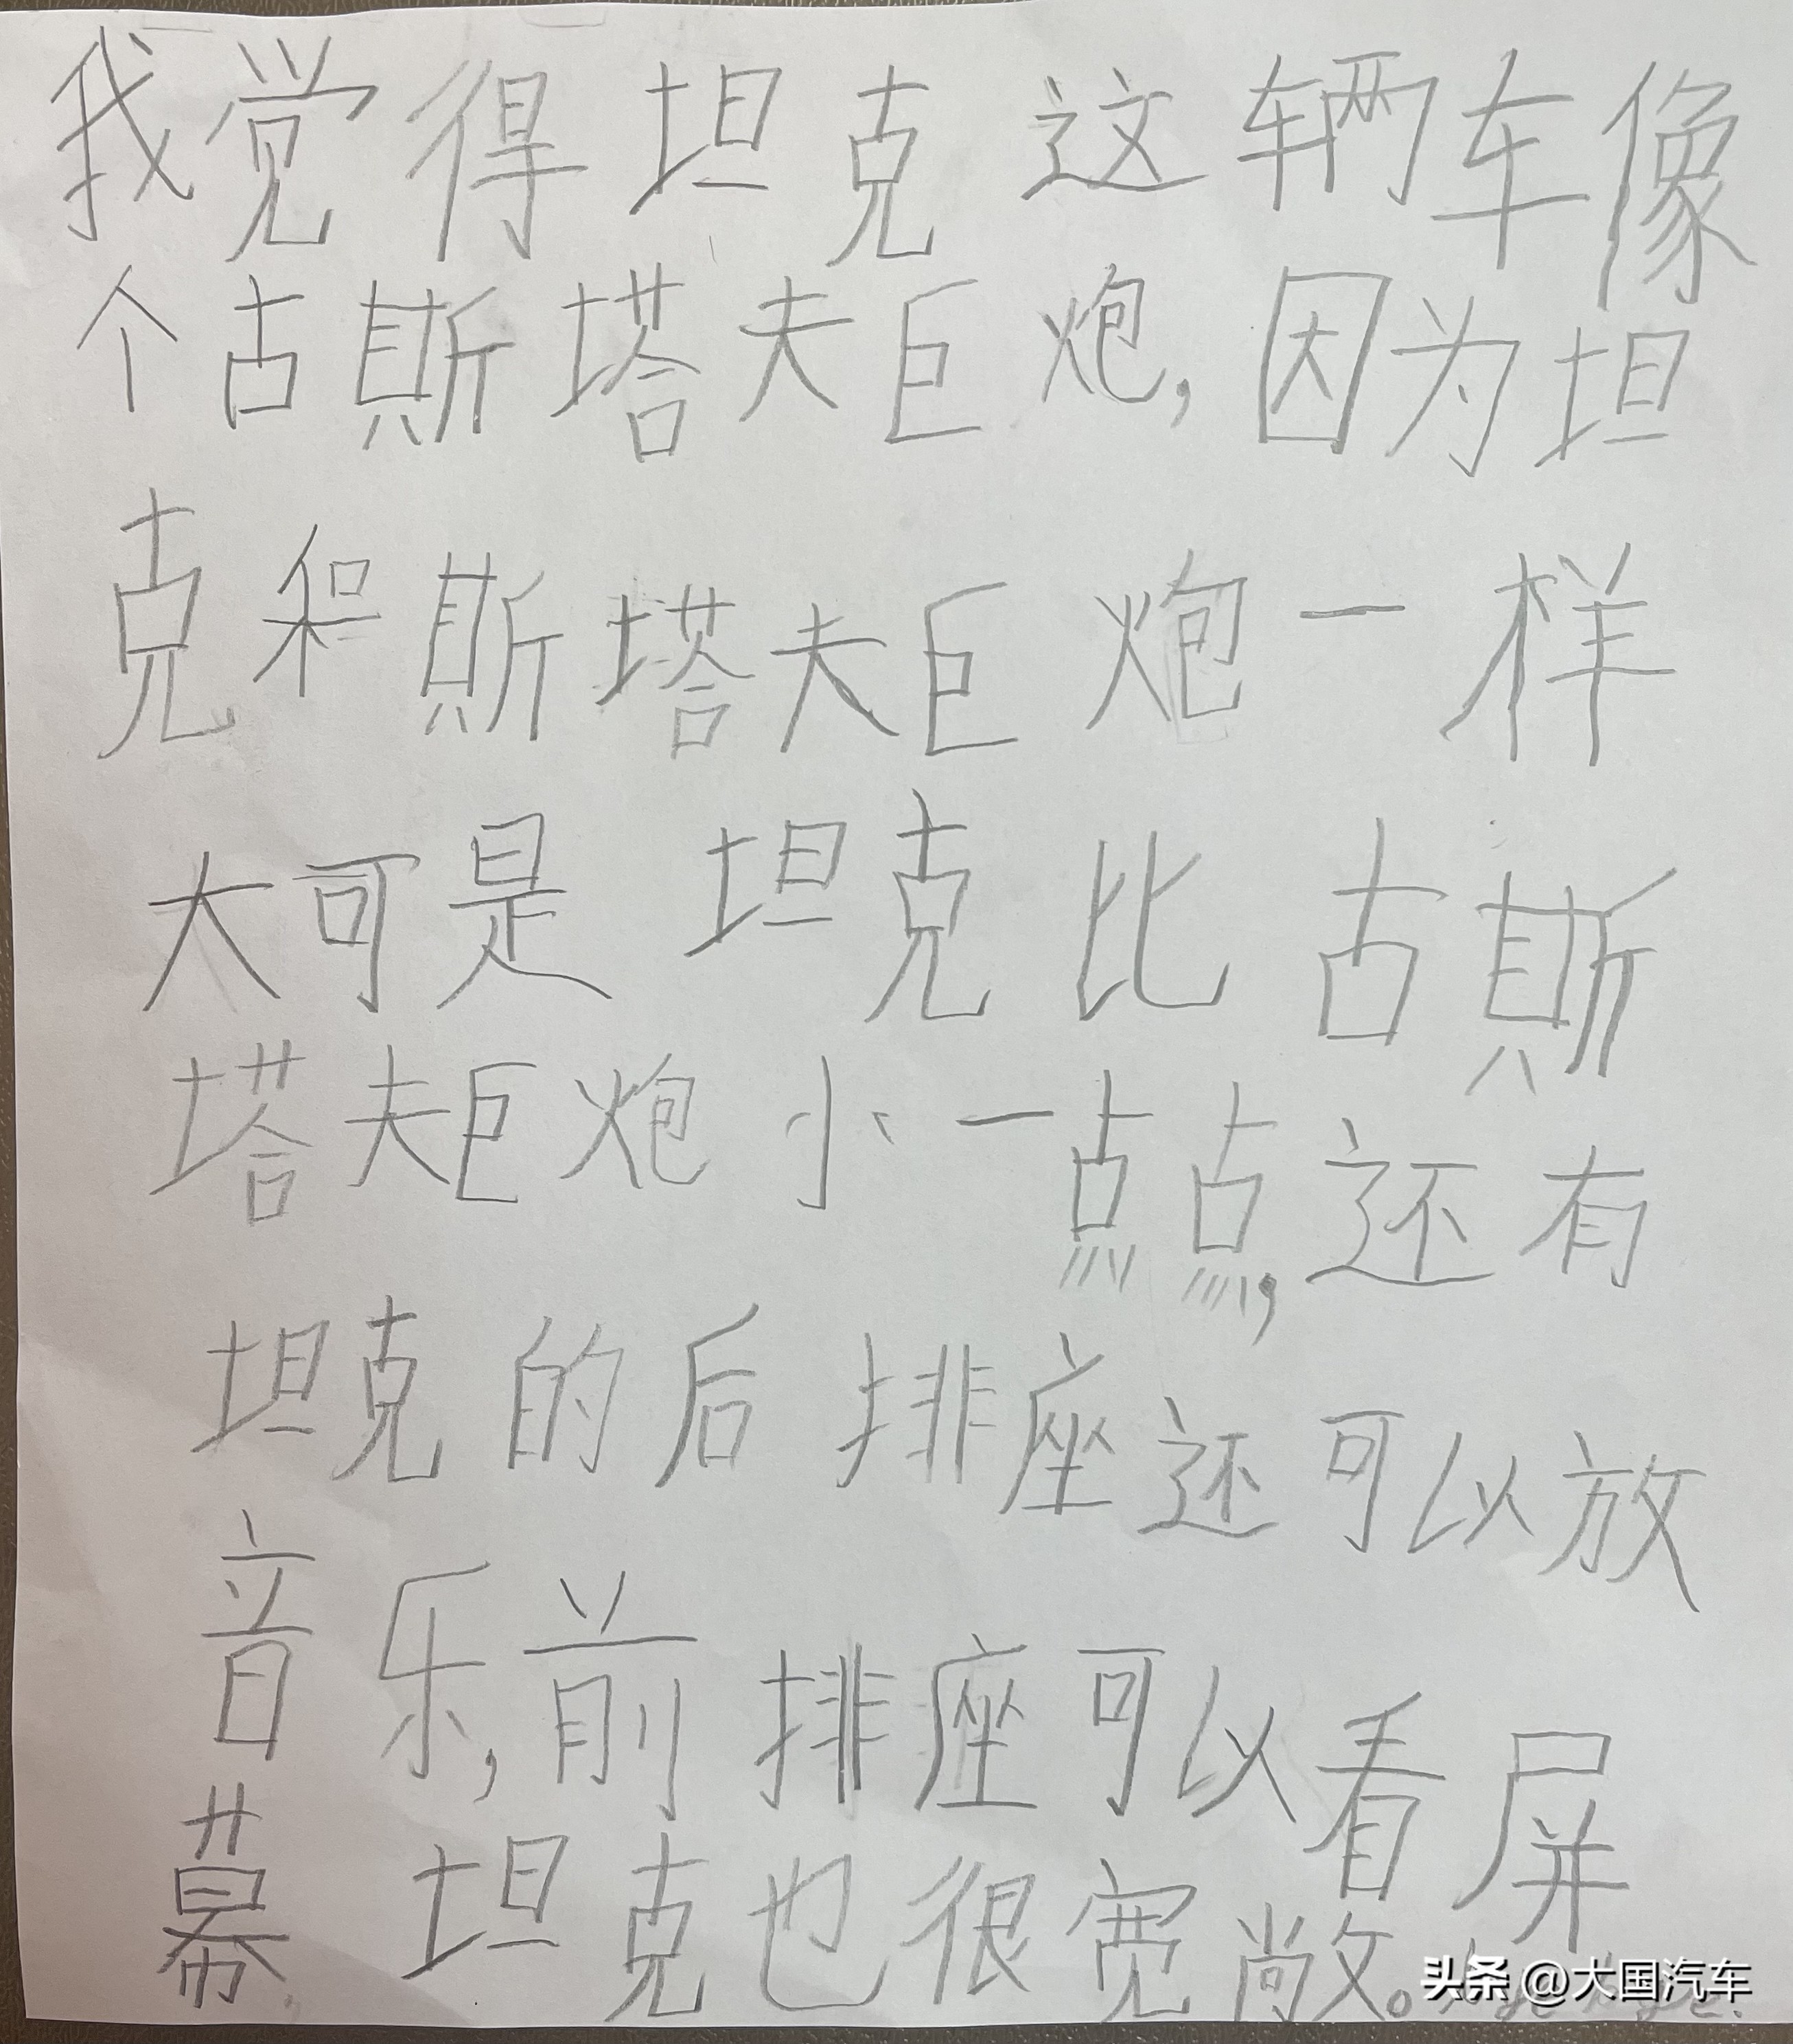 我觉得坦克这辆车像
个古斯塔夫巨炮,因为坦
克和斯塔夫巨炮一样
大可是坦克比古斯
塔夫巨炮小一点点,还有
坦克的后排座还可以放
音乐,前排座可以看屏
幕,坦克也很宽敞。
头条 @大国汽车